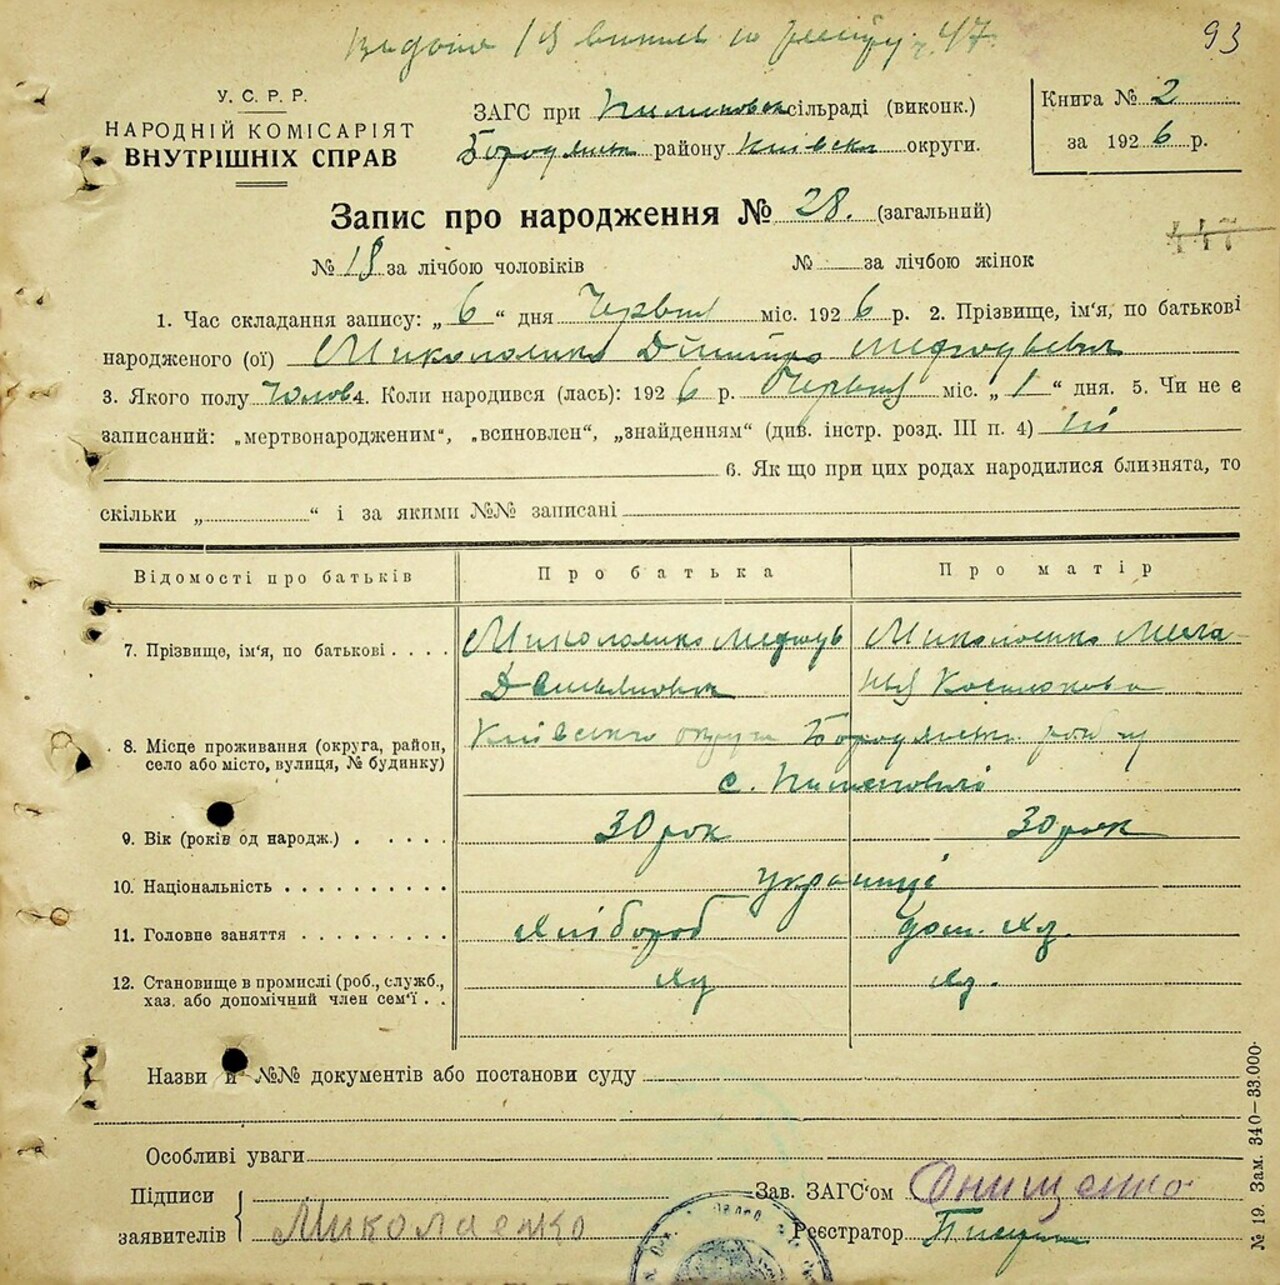 Видано 13 витяг по реєстру ч. 47
93
У. С. Р. Р.
НАРОДНІЙ КОМІСАРІЯТ
ВНУТРІШНІХ СПРАВ
ЗАГС при сільраді (виконк.)
Бородянськ району Київськ округи.
Книга № 2
за 1926 р.
Запис про народження № 28. (загальний)
447
№ 18 за лічбою чоловіків № за лічбою жінок
1. Час складання запису: „ 6 “ дня Червня міс. 1926 р. 2. Прізвище, ім‘я, по батькові
народженого (ої) Миколаєнко Дмитро
3. Якого полу чолов 4. Коли народився (лась): 1926 р. Червня міс. „ 1 “ дня. 5. Чи не є
записаний: „мертвонародженим“, „всиновлен“, „знайденням“ (див. інстр. розд. III п. 4) ні
6. Як що при цих родах народилися близнята, то
скільки „ “ і за якими №№ записані
Відомості про батьків Про батька Про матір
7. Прізвище, ім‘я, по батькові . . . . Миколаєнко Миколаєнко Мела-
нія
8. Місце проживання (округа, район, Київського округи Бородянськ. району
село або місто, вулиця, № будинку)
с.
9. Вік (років од народж.) . . . . . 30 рок 30 рок
10. Національність . . . . . . . . . . українці
11. Головне заняття . . . . . . . . . Хлібороб дом. хаз.
12. Становище в промислі (роб., служб., хаз хаз.
хаз. або допомічний член сем‘ї . .
Назви й №№ документів або постанови суду
Особливі уваги
Підписи
заявителів Миколаєнко
Зав. ЗАГС‘ом Онищенко
Реєстратор
№ 19. Зам. 340—33.000.